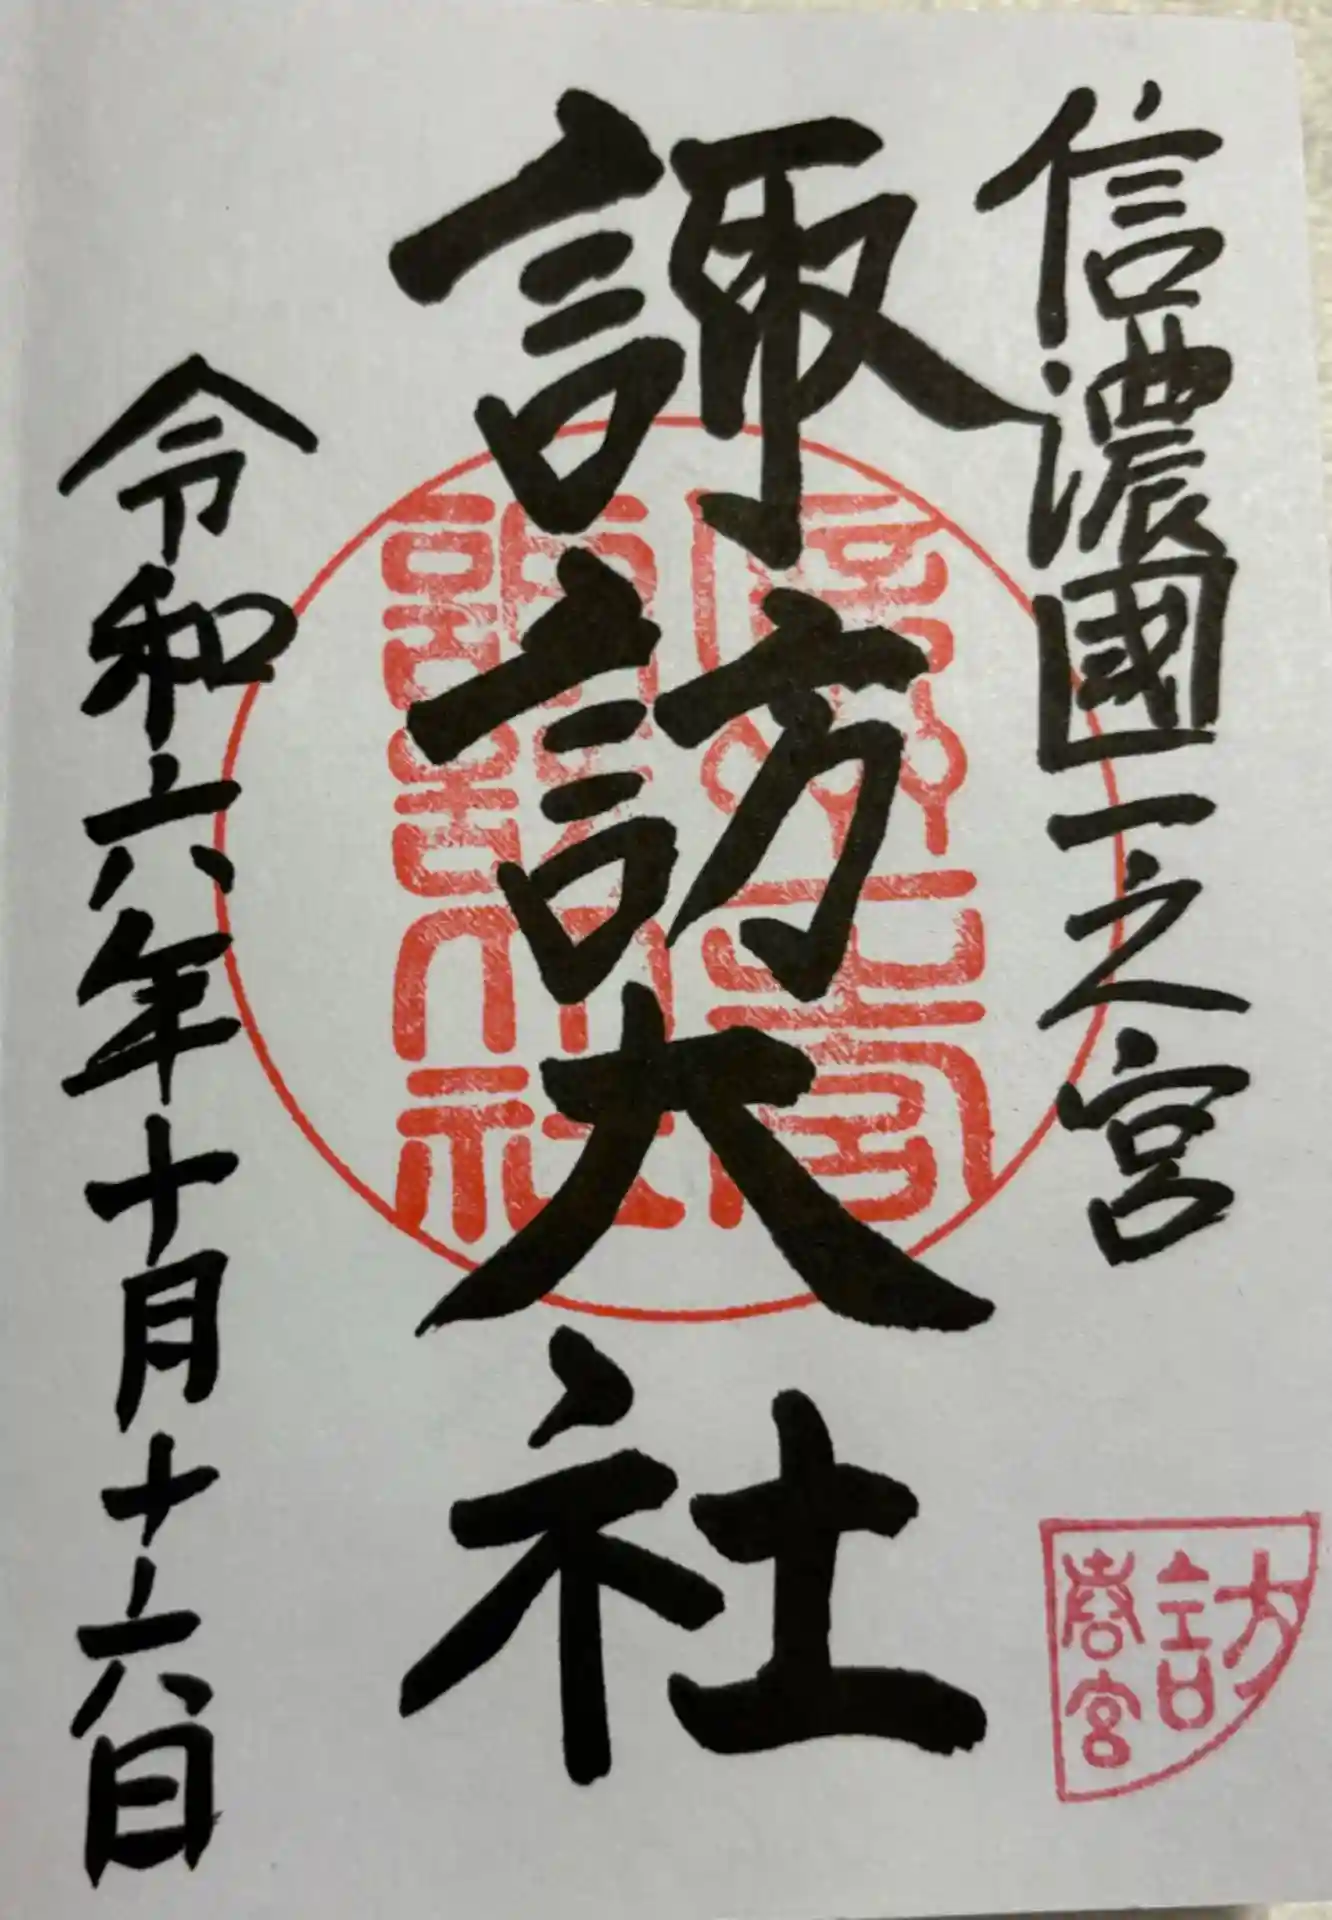 信濃國一之宮
諏訪大社
令和六年十月十六日